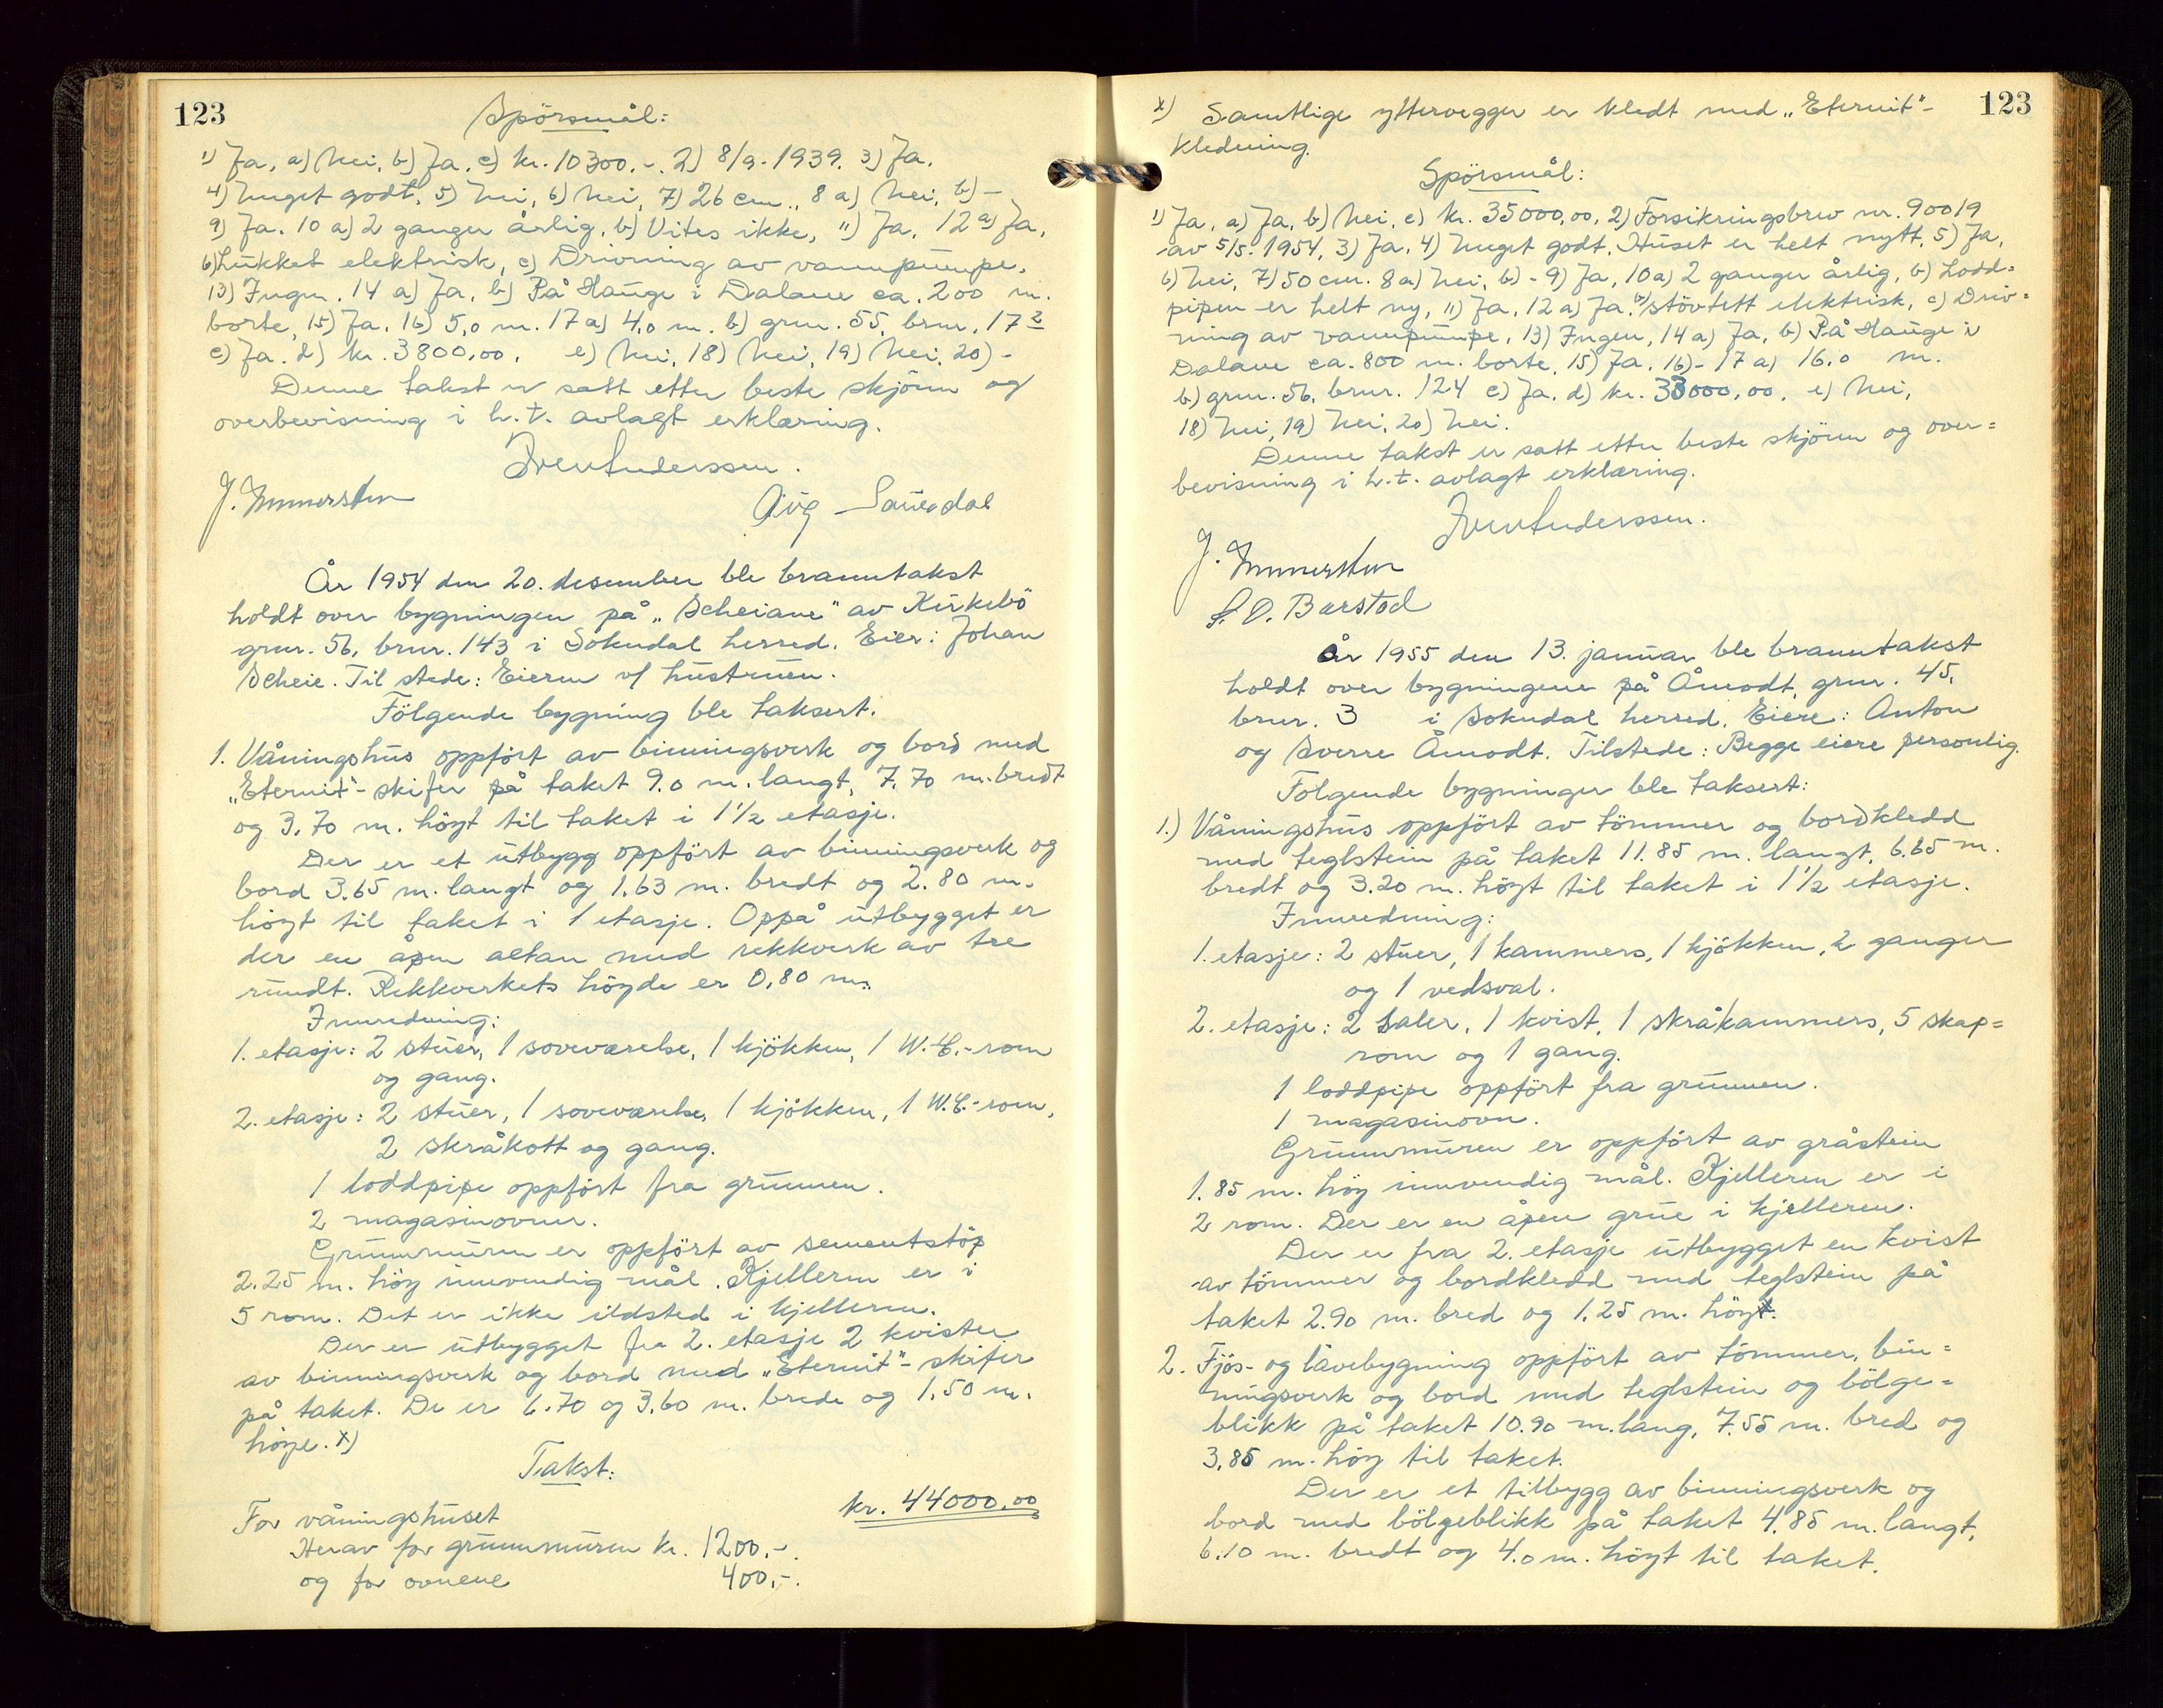 123
Spörsmål:
1) Ja, a) Nei, b) Ja, c) kr. 10300.-. 2) 8/9-1939. 3) Ja.
4) Meget godt, 5) Nei, 6) Nei, 7) 26 cm., 8 a) Nei, b) -
9) Ja. 10 a) 2 ganger årlig, b) Vites ikke, 11) Ja, 12 a) Ja,
b) Lukket elektrisk, c) Drivning av vannpumpe.
13) Ingen. 14 a) Ja, b) På Hauge i Dalane ca. 200 m.
borte, 15) Ja, 16) 5,0 m. 17 a) 4,0 m. b) gnr. 55, bnr. 172
c) Ja. d) kr. 3800,00. e) Nei, 18) Nei, 19) Nei, 20) -
Denne takst er satt etter beste skjönn og
overbevisning i h.t. avlagt erklæring.
Iver Anderssen.
J. Immerstein
Aug Sauedal
År 1954 den 20. desember ble branntakst
holdt over bygningen på „Scheiane" av Kirkebö
gnr. 56, bnr. 143 i Sokndal herred. Eier: Johan
Scheie. Til stede: Eieren v/ hustruen.
Fölgende bygning ble taksert.
1. Våningshus oppfört av binningsverk og bord med
„Eternit"-skifer på taket 9.0 m. langt, 7,70 m. bredt
og 3,70 m. höyt til taket i 1 1/2 etasje.
Der er et utbygg oppfört av binningsverk og
bord 3.65 m. langt og 1,63 m. bredt og 2.80 m.
höyt til taket i 1 etasje. Oppå utbygget er
der en åpen altan med rekkverk av tre
rundt. Rekkverkets höyde er 0,80 m.
Innredning:
1. etasje: 2 stuer, 1 soveværelse, 1 kjökken, 1 W.C.-rom
og gang.
2. etasje: 2 stuer, 1 soveværelse, 1 kjökken, 1 W.C.-rom,
2 skråkott og gang.
1 loddpipe oppfört fra grunnen.
2 magasinovner.
Grunnmuren er oppfört av sementstöp
2.25 m. höy innvendig mål. Kjelleren er i
5 rom. Det er ikke ildsted i kjelleren.
Der er utbygget fra 2. etasje 2 kvister
av binningsverk og bord med „Eternit"-skifer
på taket. De er 6.70 og 3.60 m. brede og 1.50 m.
höye. x)
Takst:
For våningshuset kr. 44000.00
Herav for grunnmuren kr. 1200,-.
og for ovnene 400,-.
123
x) Samtlige yttervegger er kledt med „Eternit"-
kledning.
Spörsmål:
1) Ja, a) Ja, b) Nei, c) kr. 35000,00, 2) Forsikringsbrev nr. 90019
av 5/5-1954, 3) Ja, 4) Meget godt. Huset er helt nytt, 5) Ja,
6) Nei, 7) 50 cm. 8 a) Nei, b) - 9) Ja, 10 a) 2 ganger årlig, b) Lodd=
pipen er helt ny, 11) Ja, 12 a) Ja. b) stövtett elektrisk, c) Driv=
ning av vannpumpe, 13) Ingen, 14 a) Ja, b) På Hauge i
Dalane ca. 800 m. borte, 15) Ja, 16) - 17 a) 16.0 m.
b) gnr. 56, bnr. 124 c) Ja, d) kr. 33000,00, e) Nei,
18) Nei, 19) Nei, 20) Nei.
Denne takst er satt etter beste skjönn og over=
bevisning i h.t. avlagt erklæring.
Iver Anderssen.
J. Immerstein
S. O. Barstad
År 1955 den 13. januar ble branntakst
holdt over bygningene på Åmodt, gnr. 45,
bnr. 3 i Sokndal herred. Eiere: Anton
og Sverre Åmodt. Tilstede: Begge eiere personlig.
Fölgende bygninger ble taksert:
1.) Våningshus oppfört av tömmer og bordkledd
med teglstein på taket 11.85 m. langt, 6.65 m.
bredt og 3.20 m. höyt til taket i 1 1/2 etasje.
Innredning:
1. etasje: 2 stuer, 1 kammers, 1 kjökken, 2 ganger
og 1 vedsval.
2. etasje: 2 saler, 1 kvist, 1 skråkammers, 5 skap=
rom og 1 gang.
1 loddpipe oppfört fra grunnen.
1 magasinovn.
Grunnmuren er oppfört av gråstein
1.85 m. höy innvendig mål. Kjelleren er i
2 rom. Der er en åpen grue i kjelleren.
Der er fra 2. etasje utbygget en kvist
av tömmer og bordkledd med teglstein på
taket 2.90 m. bred og 1.25 m. höy.
2. Fjös- og låvebygning oppfört av tömmer, bin=
ningsverk og bord med teglstein og bölge=
blikk på taket 10.90 m. lang, 7.55 m. bred og
3,85 m. höy til taket.
Der er et tilbygg av binningsverk og
bord med bölgeblikk på taket 4.85 m. langt,
6.10 m. bredt og 4.0 m. höyt til taket.